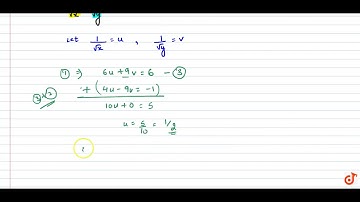 √x √y
Let 1/√x = u , 1/√y = v
① ⇒ 6u + 9v = 6 - ③
+ (4u - 9v = -1)
10u + 0 = 5
u = 5/10 = 1/2